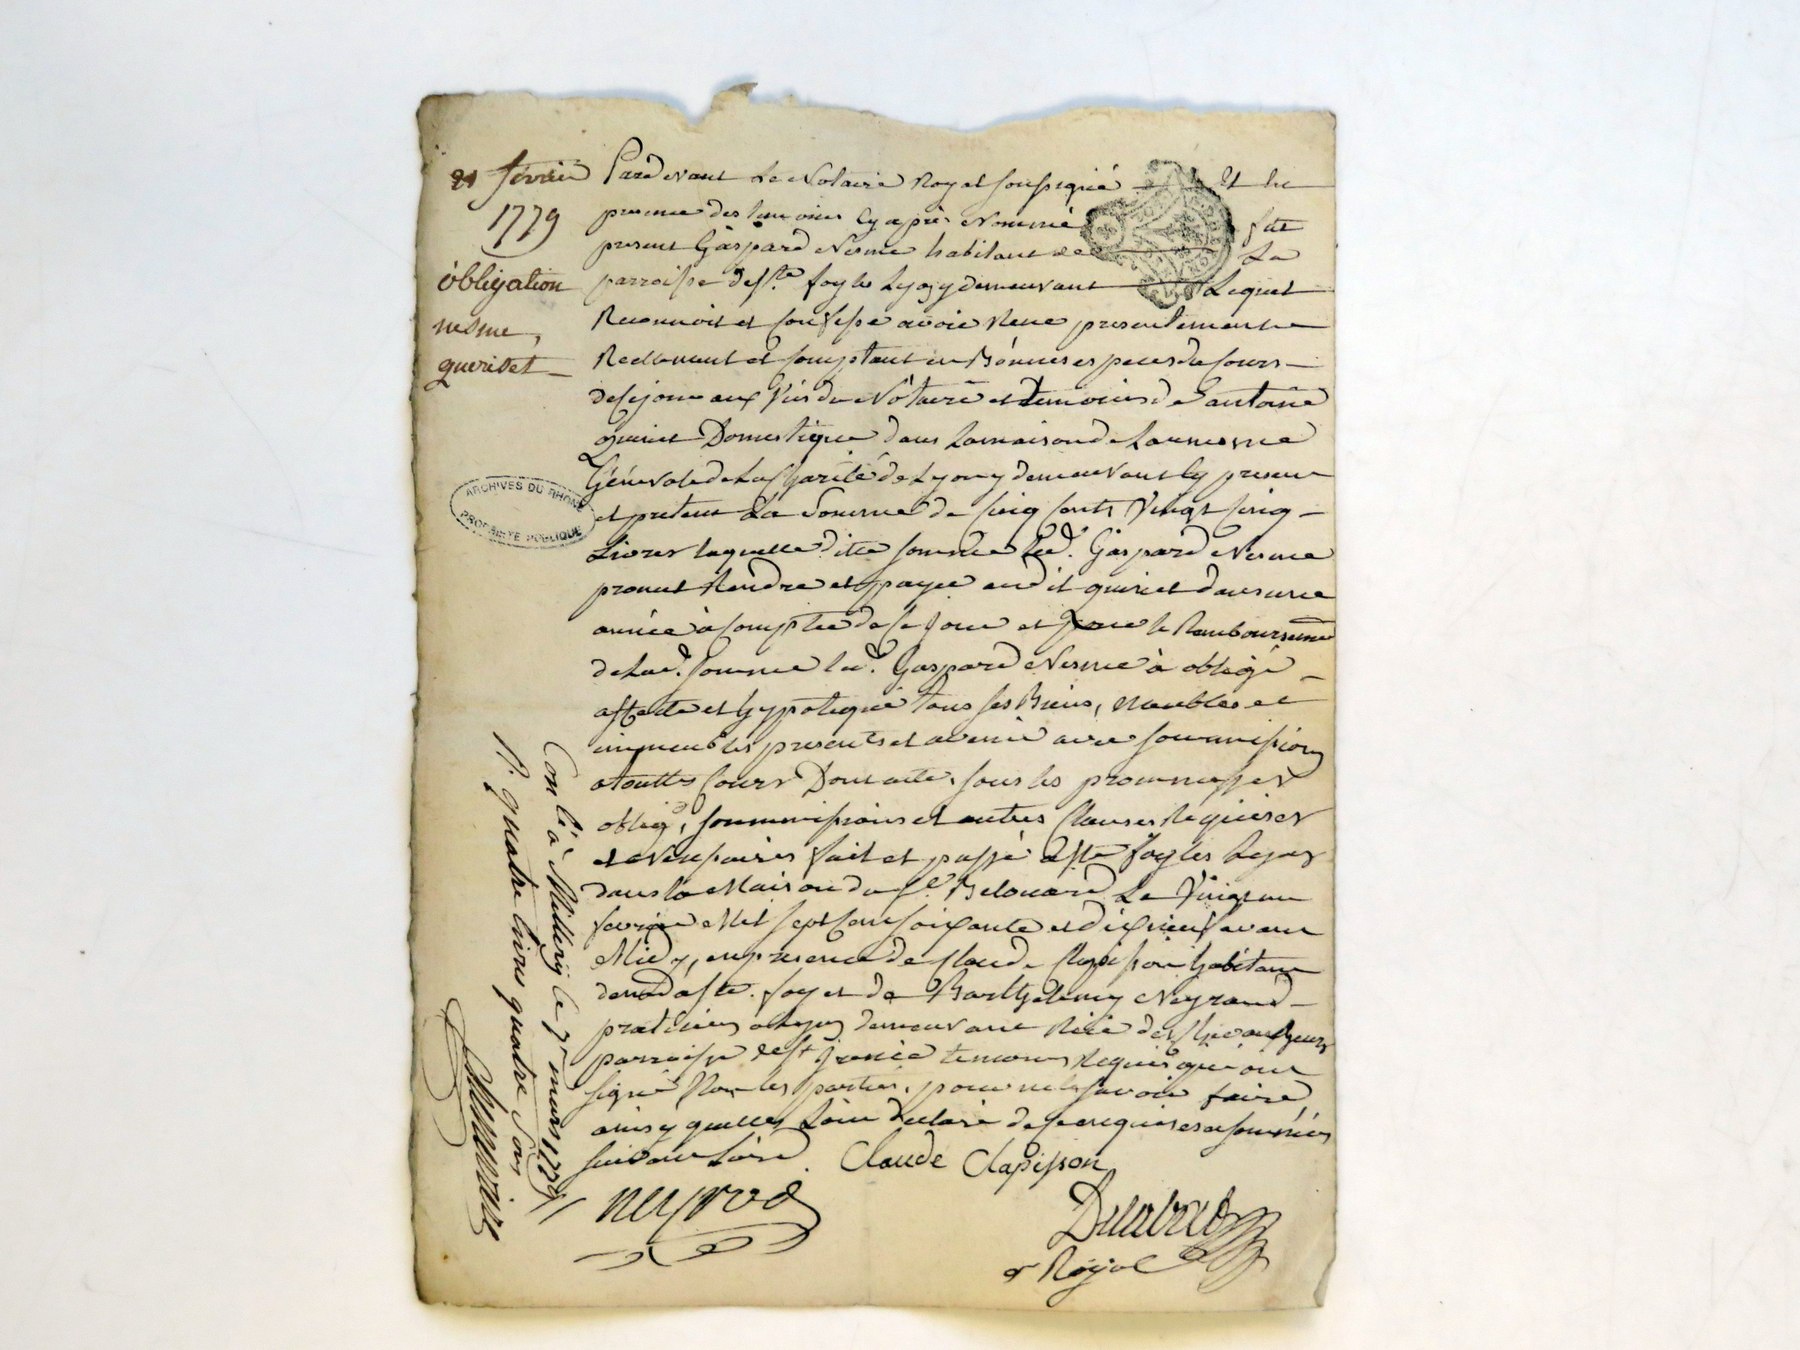 21 février
1779
obligation
nesme,
queridet
Pardevant Le Notaire Royal soussigné Et En
presence des temoins cy après Nommé fut
present Gaspard Nesme habitant de La
parroisse de Ste foy les Lyon y demeurant Lequel
Reconnoit et Confesse avoir Reçu presentement
Reellement et Comptant en Bonnes especes du Cours
de ce jour aux Vus du Nôtaire et temoins de Sr antoine
quiriet Domestique dans La maison de Laumosne
Générale de La Charité de Lyon y demeurant Cy present
et La Somme de Cinq Cents Vingt Cinq
Livres laquelle ditte somme Led. Gaspard Nesme
promet Rendre et payer audit quiriet dans une
année à Compter de Ce jour et pour le Remboursement
de Lad. somme led. Gaspard Nesme à obligé
affecté et hypotequé tous ses Biens, Meubles et
immeubles presents et avenir avec soummission
a toutes Cours Dont acte, sous les prommesses
oblig. soummissions et autres Clauses Requises
et Necessaires fait et passé à Ste foy les Lyon
dans la Maison du Sr Belouard Le Vingt un
fevrier Mil sept Cent soixante et dix neuf avant
Midy, en presence de Claude Clapisson habitant
dud Ste. foy et de Barthelemy Neyrand
praticien a Lyon demeurant Rüe
parroisse de St Irenée temoins Requis qui ont
signé Non les parties, pour ne le savoir faire,
ainsy quelles Lont declaré de ce enquises et sommées
suivant
Claude Clapisson
neyrod
Royal
Conlé à Millery le 7r mars 1779
R. quatre livres quatre sous
ARCHIVES DU RHÔNE
PROPRIÉTÉ PUBLIQUE